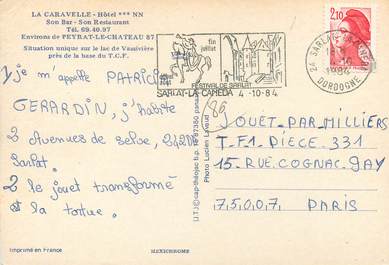 LA CARAVELLE - Hôtel *** NN
Son Bar - Son Restaurant
Tél. 69.40.97
Environs de PEYRAT-LE-CHATEAU 87
Situation unique sur le lac de Vassivière
près de la base du T.C.F.
fin juillet
FESTIVAL DE SARLAT
SARLAT-LA-CANEDA 4-10-84
2,10
1984
DORDOGNE
1 je m'appelle PATRICK
GERARDIN, j'habite
2 avenues de selve, 24200
Sarlat.
2 le jouet transformé
et la tortue.
JOUET PAR MILLIERS
T.F1. PIÈCE. 331
15. RUE. COGNAC. JAY
75007. PARIS
Photo Lucien
Imprimé en France
MEXICHROME